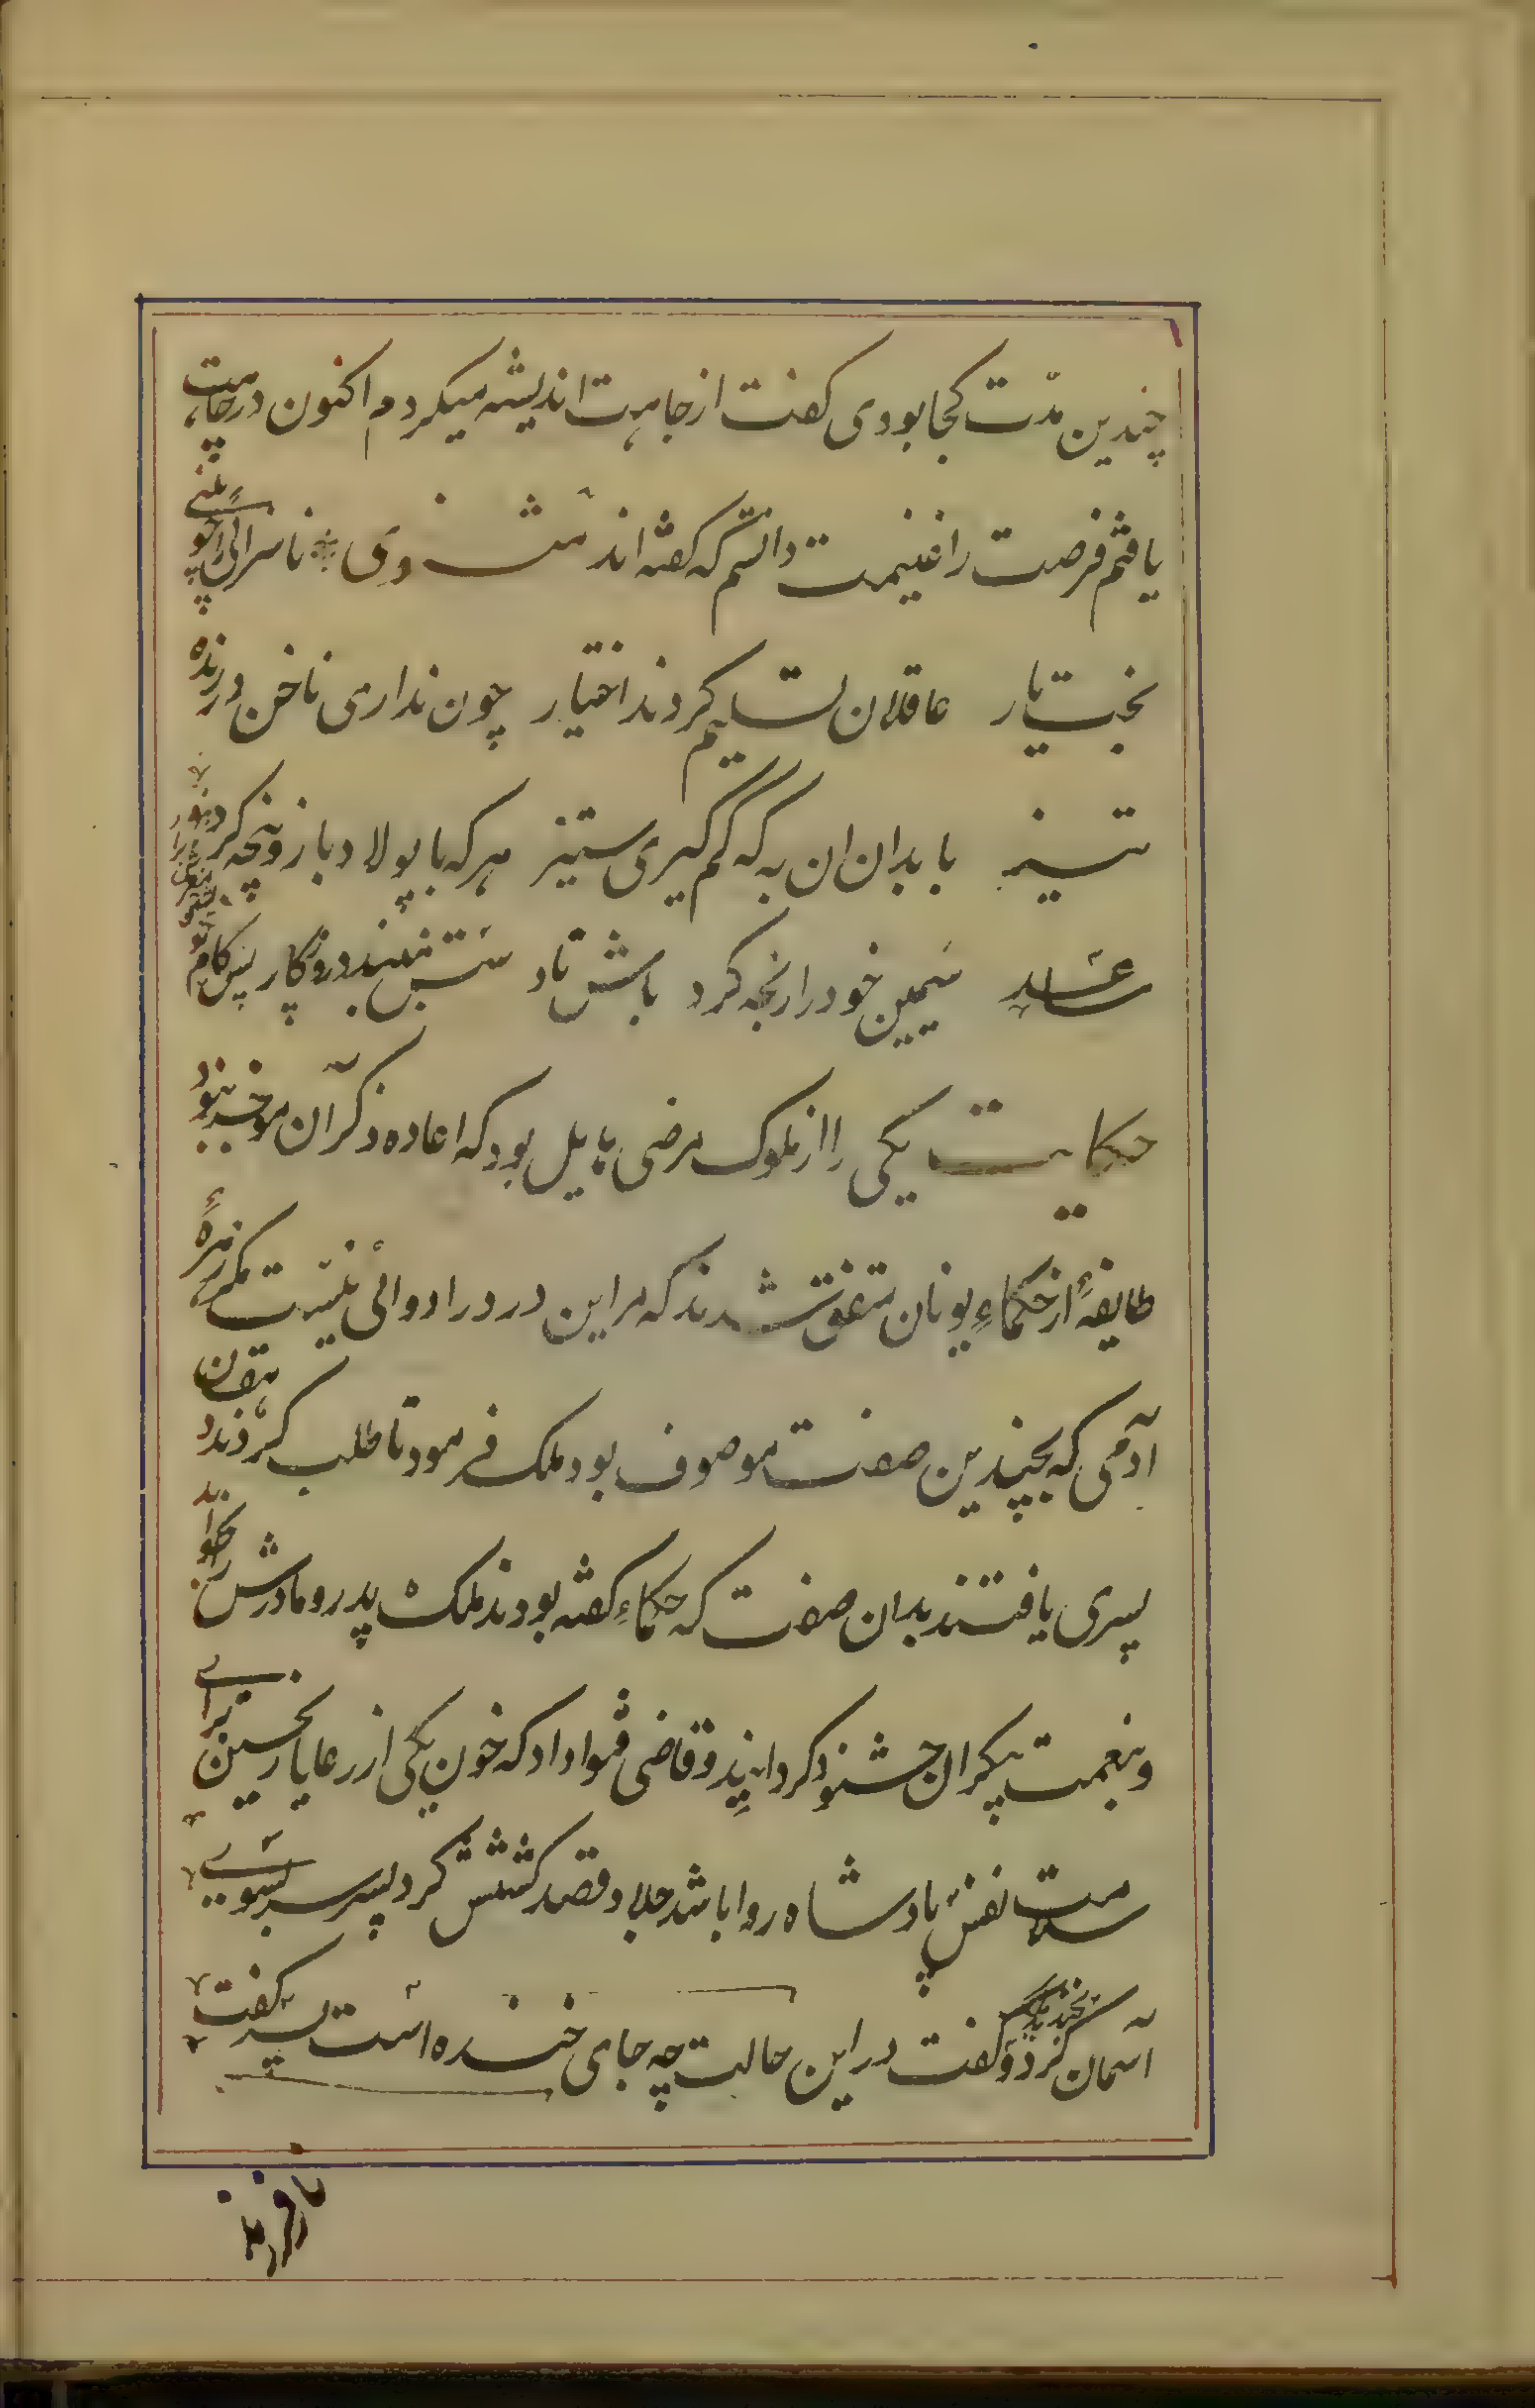 چندین مدّت کجا بودی کفت از جاهت اندیشه میکردم اکنون در چاهت
یافتم فرصت را غنیمت دانستم که کفته اند مثنوی ناسزائی را چو بینے
بخت یار عاقلان تسلیم کردند اختیار چون نداری ناخن درنده
تیز با بدان ان به که کم کیری ستیز هر که با پولاد بازو پنجه کرد
ساعد سیمین خود را رنجه کرد باش تا دستش ببندد روزکار پس بکام
حکایت یکی را از ملوک مرضی هایل بود که اعاده ذکر آن موجب نبود
طایفهٔ از حکماءِ یونان متفق شدند که مر این درد را دوائی نیست مکر زهرهٔ
آدمی که بچندین صفت موصوف بود ملک فرمود تا طلب کردند دهقان
پسری یافتند بدان صفت که حکماء کفته بودند ملک پدر و مادرش را بخواند
و بنعمت بیکران خشنود کردانید و قاضی فتوا داد که خون یکی از رعایا ریختن برای
سلامت نفس پادشاه روا باشد جلاد قصد کشتنش کرد پسر سر بسوے
آسمان کرد و بخندید ملک کفت در این حالت چه جای خنده است پسر کفت
ناز فرزند